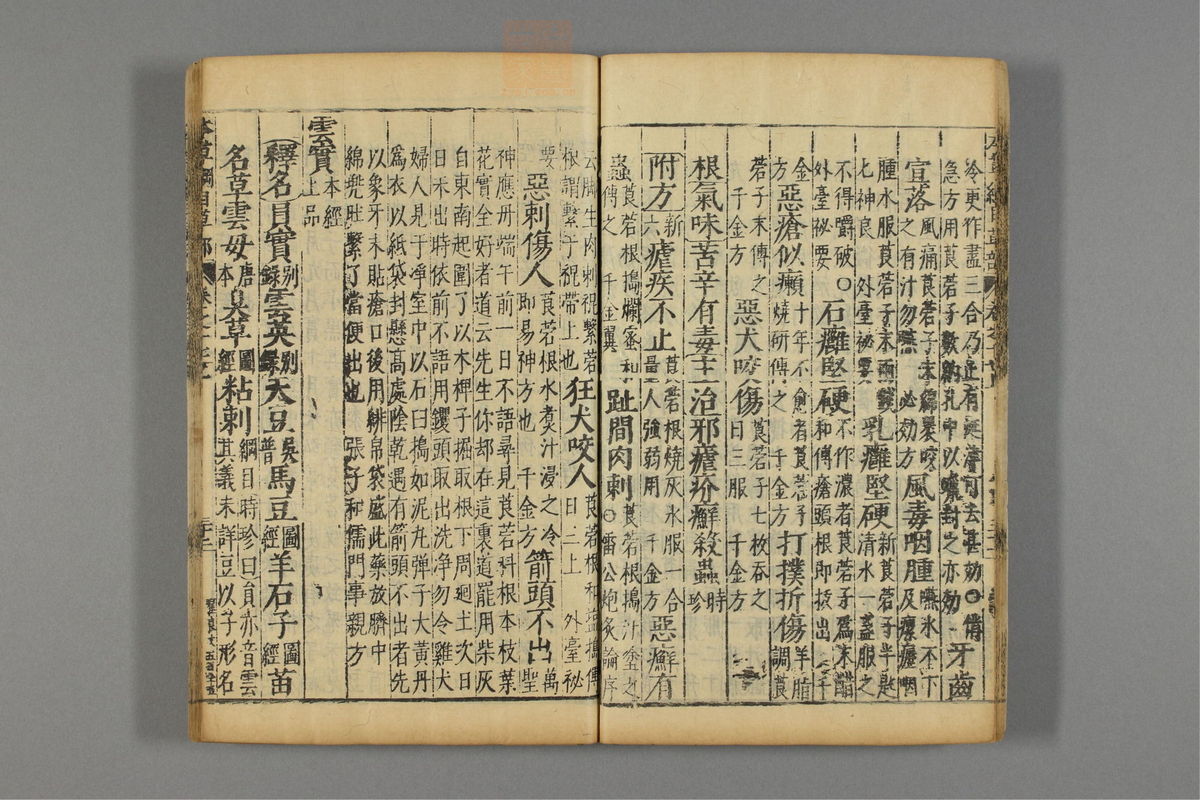 冷更作盡三合乃止有涎津可去甚効○備
急方用莨菪子數粒納孔中以蠟封之亦効牙齒
宣落風痛莨菪子末綿裹咬之有汁勿嚥 必効方風毒咽腫嚥水不下及瘰癧咽
腫水服莨菪子末兩錢匕神良 外臺秘要乳癰堅硬新莨菪子半匙清水一盞服之
不得嚼破○外臺秘要石癰堅硬不作濃者莨菪子爲末醋和傅瘡頭根即拔出千
方惡瘡似癩十年不愈者莨菪子燒研傅之 千金方打撲折傷羊脂調莨
菪子末傅之 千金方惡犬咬傷莨菪子七枚吞之日三服 千金方
根氣味苦辛有毒主治邪瘧疥癬殺蟲時珍
附方新六瘧疾不止莨菪根燒灰水服一合量人強弱用 千金方惡癬有
蟲莨菪根搗爛蜜和傅之 千金翼趾間肉刺○莨菪根搗汁塗之雷公炮炙論序
云脚生肉刺裩繫菪根謂繫于裩帶上也狂犬咬人莨菪根和鹽搗傅日三上 外臺秘
要惡刺傷人莨菪根水煮汁浸之冷即易神方也 千金方箭頭不出萬聖
神應丹端午前一日不語尋見莨菪科根本枝葉
花實全好者道云先生你却在這裏道罷用柴灰
自東南起圍了以木椑子掘取根下周廻土次日
日未出時依前不語用钁頭取出洗淨勿令雞犬
婦人見于淨室中以石臼搗如泥丸彈子大黃丹
爲衣以紙袋封懸高處陰乾遇有箭頭不出者先
以象牙末貼瘡口後用緋帛袋盛此藥放臍中
綿兜肚繫了當便出也 張子和儒門事親方
雲實本經上品
釋名員實別錄雲英別錄天豆吳普馬豆圖經羊石子圖經苗
名草雲母唐本臭草圖經粘刺綱目時珍曰員亦音雲其義未詳豆以子形名